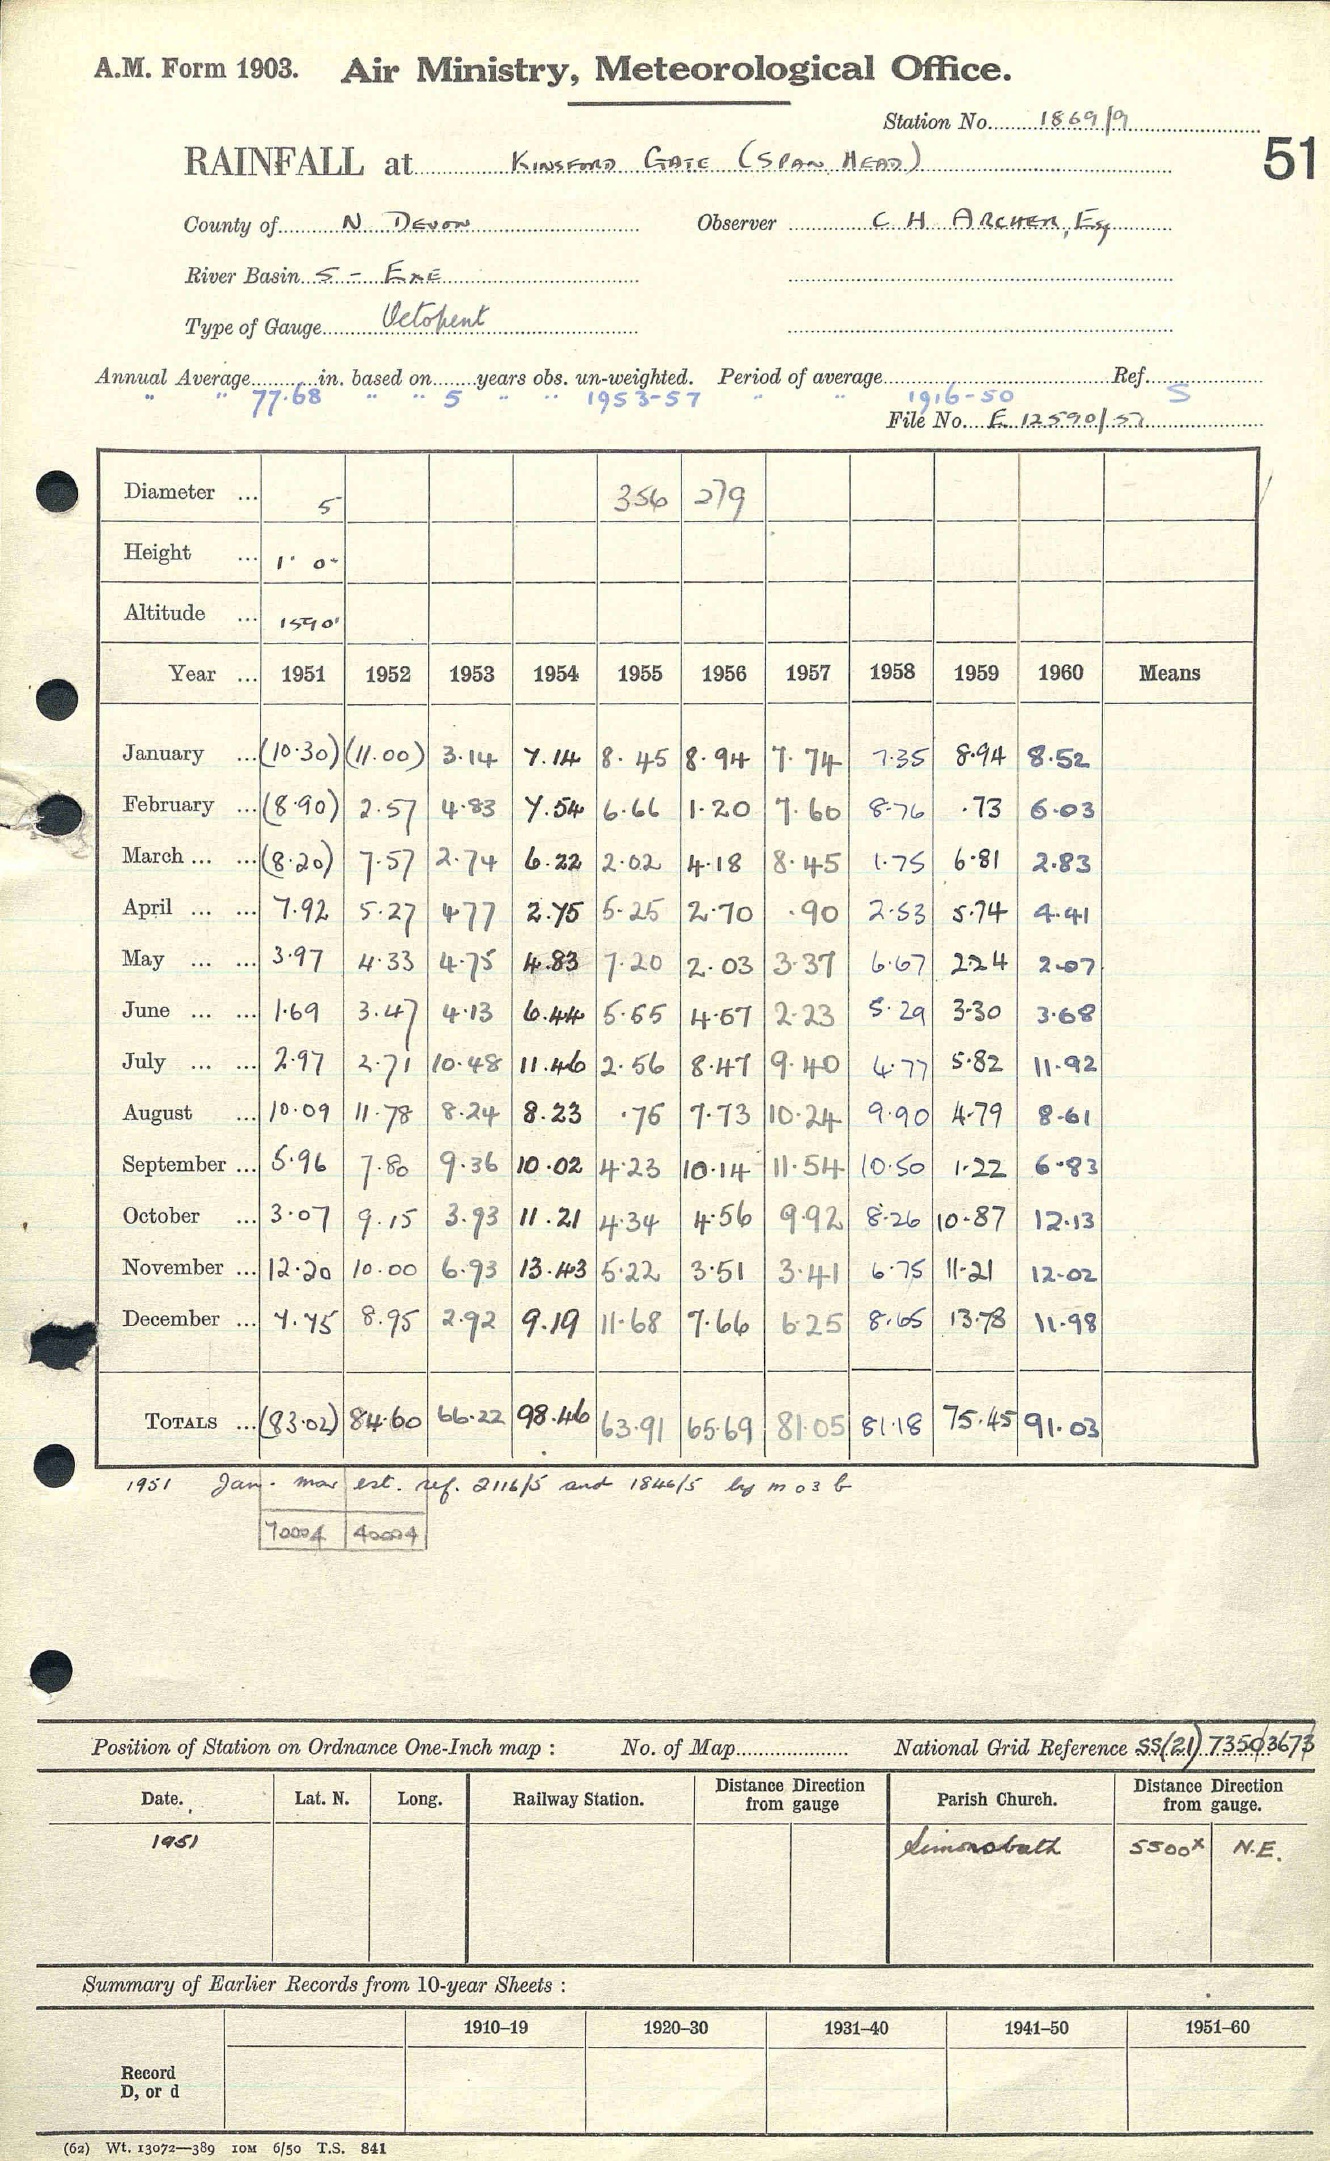 A.M. Form 1903. Air Ministry, Meteorological Office.
Station No. 1869/9
51
RAINFALL at KINSFORD GATE (SPAN HEAD)
County of N. DEVON Observer C H ARCHER, Esq
River Basin S - EXE
Type of Gauge Octopent
Annual Average in. based on years obs. un-weighted. Period of average Ref.
" " 77.68 " " 5 " " 1953-57 " " 1916-50 S
File No. E 12590/57
Diameter ... 5 356 279
Height ... 1' 0"
Altitude ... 1590'
Year ... 1951 1952 1953 1954 1955 1956 1957 1958 1959 1960 Means
January ... (10.30) (11.00) 3.14 7.14 8.45 8.94 7.74 7.35 8.94 8.52
February ... (8.90) 2.57 4.83 7.54 6.66 1.20 7.60 8.76 .73 6.03
March ... ... (8.20) 7.57 2.74 6.22 2.02 4.18 8.45 1.75 6.81 2.83
April ... ... 7.92 5.27 4.77 2.75 5.25 2.70 .90 2.53 5.74 4.41
May ... ... 3.97 4.33 4.75 4.83 7.20 2.03 3.37 6.67 2.24 2.07
June ... ... 1.69 3.47 4.13 6.44 5.55 4.57 2.23 5.29 3.30 3.68
July ... ... 2.97 2.71 10.48 11.46 2.56 8.47 9.40 4.77 5.82 11.92
August ... 10.09 11.78 8.24 8.23 .75 7.73 10.24 9.90 4.79 8.61
September ... 5.96 7.80 9.36 10.02 4.23 10.14 11.54 10.50 1.22 6.83
October ... 3.07 9.15 3.93 11.21 4.34 4.56 9.92 8.26 10.87 12.13
November ... 12.20 10.00 6.93 13.43 5.22 3.51 3.41 6.75 11.21 12.02
December ... 7.75 8.95 2.92 9.19 11.68 7.66 6.25 8.65 13.78 11.98
TOTALS ... (83.02) 84.60 66.22 98.46 63.91 65.69 81.05 81.18 75.45 91.03
1951 Jan - Mar est. ref. 2116/5 and 1846/5 by m o 3 b
70004 40004
Position of Station on Ordnance One-Inch map : No. of Map National Grid Reference SS(21) 73503673
Date. Lat. N. Long. Railway Station. Distance Direction from gauge Parish Church. Distance Direction from gauge.
1951 Simonsbath 5500x N.E.
Summary of Earlier Records from 10-year Sheets :
1910–19 1920–30 1931–40 1941–50 1951–60
Record
D, or d
(62) Wt. 13072—389 10M 6/50 T.S. 841